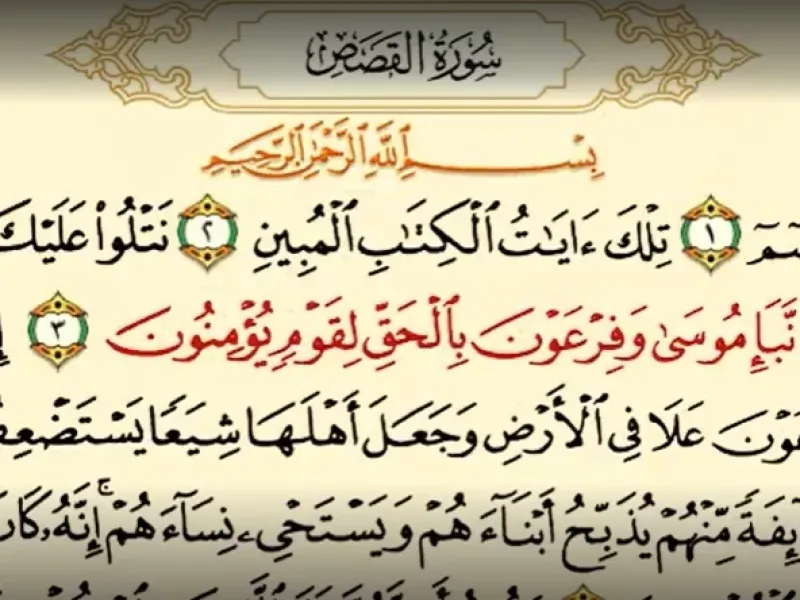 سُورَةُ القَصَصِ
بِسْمِ ٱللَّهِ ٱلرَّحْمَٰنِ ٱلرَّحِيمِ
١ تِلْكَ ءَايَٰتُ ٱلْكِتَٰبِ ٱلْمُبِينِ ٢ نَتْلُوا۟ عَلَيْكَ
نَّبَإِ مُوسَىٰ وَفِرْعَوْنَ بِٱلْحَقِّ لِقَوْمٍ يُؤْمِنُونَ ٣
عَلَا فِى ٱلْأَرْضِ وَجَعَلَ أَهْلَهَا شِيَعًا
مِّنْهُمْ يُذَبِّحُ أَبْنَآءَهُمْ وَيَسْتَحْىِۦ نِسَآءَهُمْ ۚ إِنَّهُۥ